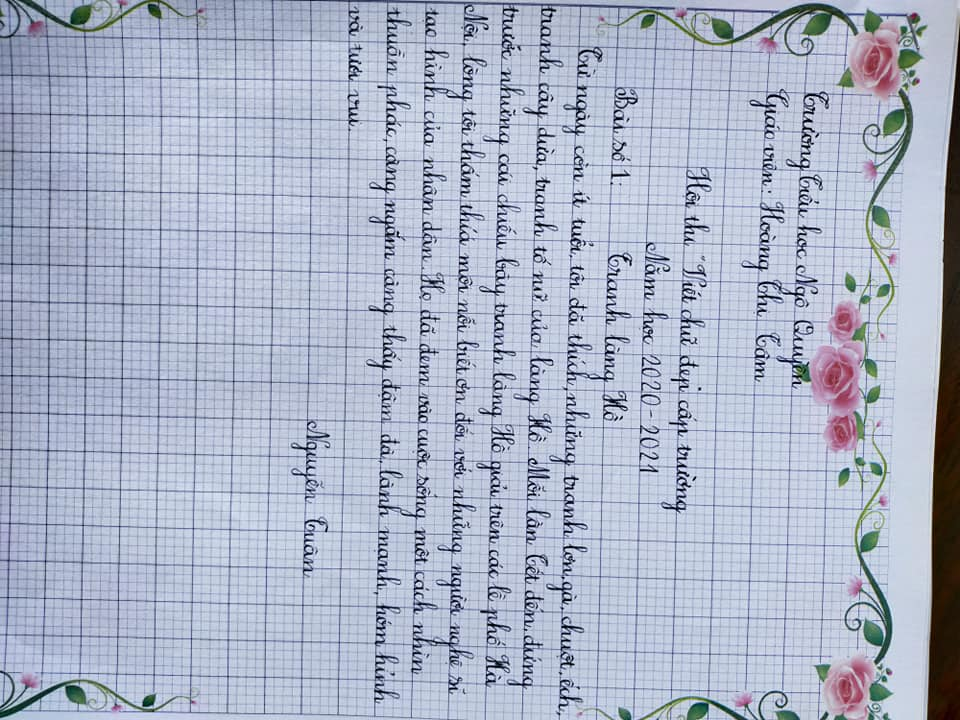 Trường Tiểu học Ngô Quyền
Giáo viên: Hoàng Thị Tâm
Hội thi "Viết chữ đẹp cấp trường
Năm học 2020-2021
Bài số 1: Tranh làng Hồ
Từ ngày còn ít tuổi, tôi đã thích, những tranh lợn, gà, chuột, ếch,
tranh cây dừa, tranh tố nữ của làng Hồ. Mỗi lần Tết đến, đứng
trước những cái chiếu bày tranh làng Hồ giải trên các lề phố Hà
Nội, lòng tôi thấm thía một nỗi biết ơn đối với những người nghệ sĩ
tạo hình của nhân dân. Họ đã đem vào cuộc sống một cách nhìn
thuần phác, càng ngắm càng thấy đậm đà, lành mạnh, hóm hỉnh
và tươi vui.
Nguyễn Tuân